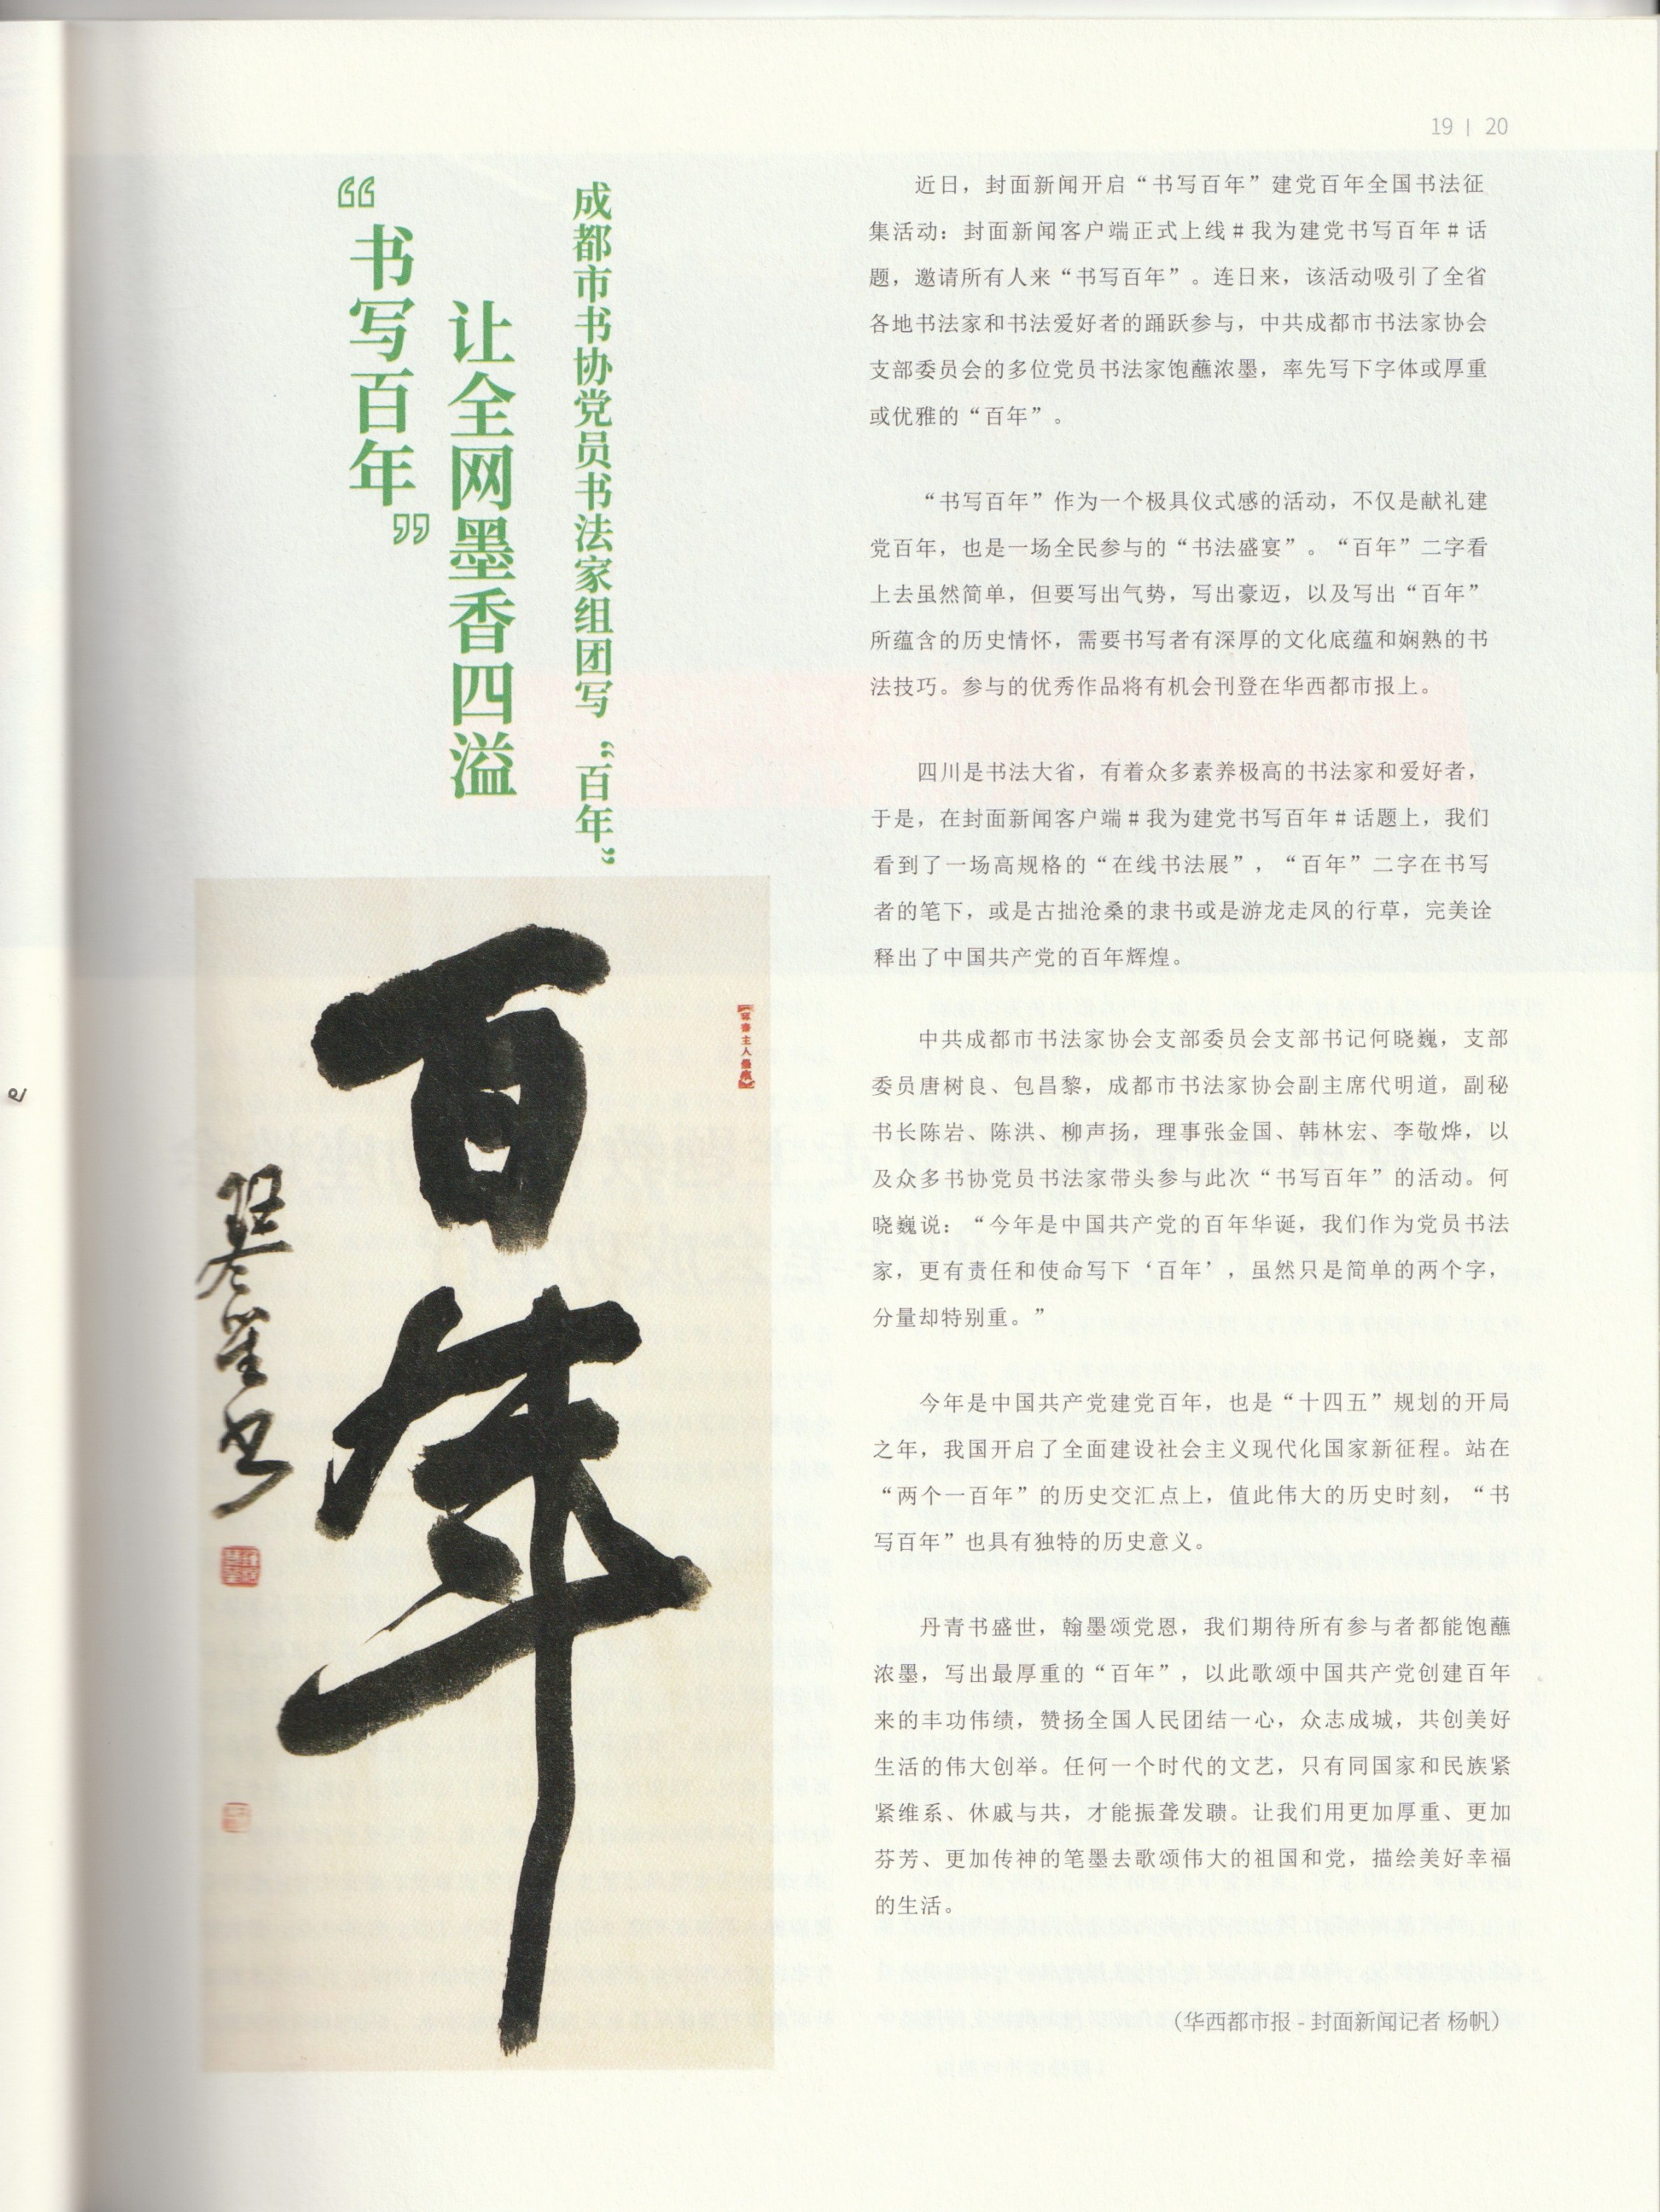 19 | 20
“书写百年”
让全网墨香四溢
成都市书协党员书法家组团写“百年”
近日，封面新闻开启“书写百年”建党百年全国书法征
集活动：封面新闻客户端正式上线#我为建党书写百年#话
题，邀请所有人来“书写百年”。连日来，该活动吸引了全省
各地书法家和书法爱好者的踊跃参与，中共成都市书法家协会
支部委员会的多位党员书法家饱蘸浓墨，率先写下字体或厚重
或优雅的“百年”。
“书写百年”作为一个极具仪式感的活动，不仅是献礼建
党百年，也是一场全民参与的“书法盛宴”。“百年”二字看
上去虽然简单，但要写出气势，写出豪迈，以及写出“百年”
所蕴含的历史情怀，需要书写者有深厚的文化底蕴和娴熟的书
法技巧。参与的优秀作品将有机会刊登在华西都市报上。
四川是书法大省，有着众多素养极高的书法家和爱好者，
于是，在封面新闻客户端#我为建党书写百年#话题上，我们
看到了一场高规格的“在线书法展”，“百年”二字在书写
者的笔下，或是古拙沧桑的隶书或是游龙走凤的行草，完美诠
释出了中国共产党的百年辉煌。
中共成都市书法家协会支部委员会支部书记何晓巍，支部
委员唐树良、包昌黎，成都市书法家协会副主席代明道，副秘
书长陈岩、陈洪、柳声扬，理事张金国、韩林宏、李敬烨，以
及众多书协党员书法家带头参与此次“书写百年”的活动。何
晓巍说：“今年是中国共产党的百年华诞，我们作为党员书法
家，更有责任和使命写下‘百年’，虽然只是简单的两个字，
分量却特别重。”
今年是中国共产党建党百年，也是“十四五”规划的开局
之年，我国开启了全面建设社会主义现代化国家新征程。站在
“两个一百年”的历史交汇点上，值此伟大的历史时刻，“书
写百年”也具有独特的历史意义。
丹青书盛世，翰墨颂党恩，我们期待所有参与者都能饱蘸
浓墨，写出最厚重的“百年”，以此歌颂中国共产党创建百年
来的丰功伟绩，赞扬全国人民团结一心，众志成城，共创美好
生活的伟大创举。任何一个时代的文艺，只有同国家和民族紧
紧维系、休戚与共，才能振聋发聩。让我们用更加厚重、更加
芬芳、更加传神的笔墨去歌颂伟大的祖国和党，描绘美好幸福
的生活。
（华西都市报 - 封面新闻记者 杨帆）
百年